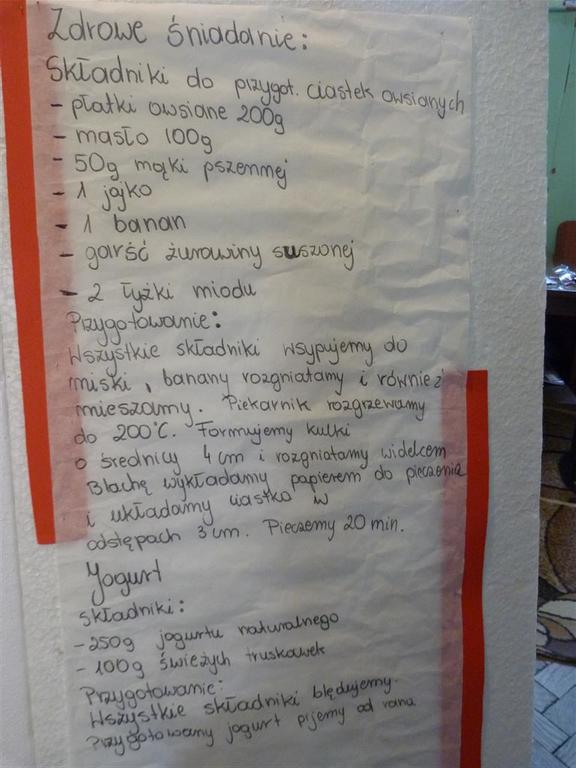 Zdrowe śniadanie:
Składniki do przygot. ciastek owsianych
- płatki owsiane 200g
- masło 100g
- 50g mąki pszennej
- 1 jajko
- 1 banan
- garść żurawiny suszonej
- 2 łyżki miodu
Przygotowanie:
Wszystkie składniki wsypujemy do
miski, banany rozgniatamy i również
mieszamy. Piekarnik rozgrzewamy
do 200°C. Formujemy kulki
o średnicy 4 cm i rozgniatamy widelcem
Blachę wykładamy papierem do pieczenia
i układamy ciastka w
odstępach 3 cm. Pieczemy 20 min.
Yogurt
Składniki:
- 250g jogurtu naturalnego
- 100g świeżych truskawek
Przygotowanie:
Wszystkie składniki blędujemy.
Przygotowany jogurt pijemy od rana